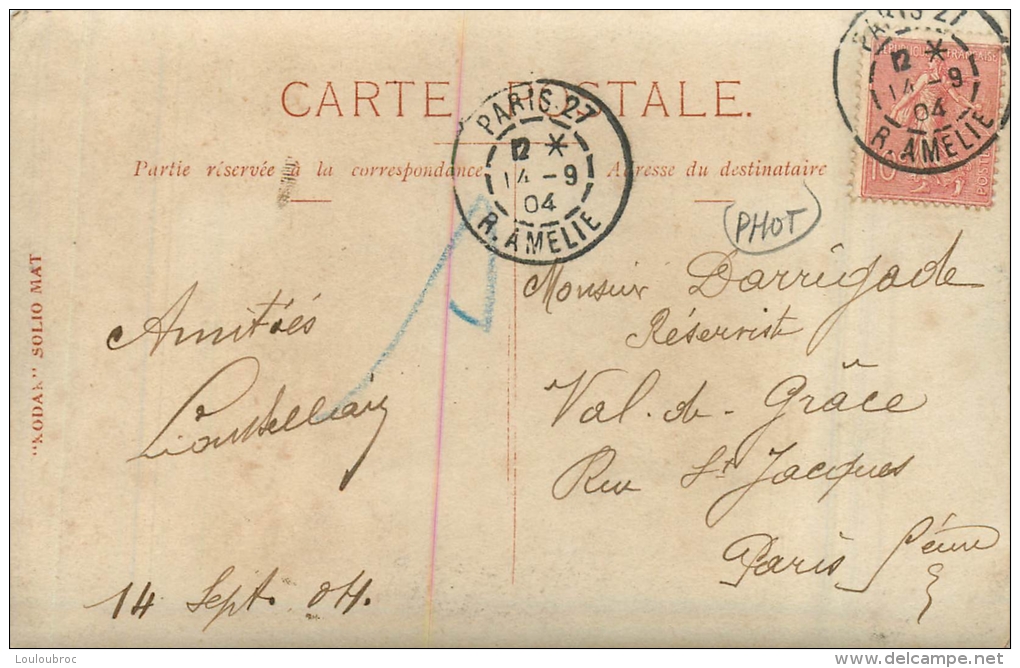 CARTE POSTALE.
Partie réservée à la correspondance
Adresse du destinataire
PARIS.27
12 *
14 - 9
04
R. AMELIE
PARIS 27
12 *
14 - 9
04
R. AMELIE
RÉPUBLIQUE FRANÇAISE
10
POSTES
PHOT
Amitiés
14 Sept. 04.
Monsieur Darrigade
Réserviste
Val-de-Grâce
Rue St Jacques
Paris Seine
"KODAK" SOLIO MAT
Louloubroc
www.delcampe.net